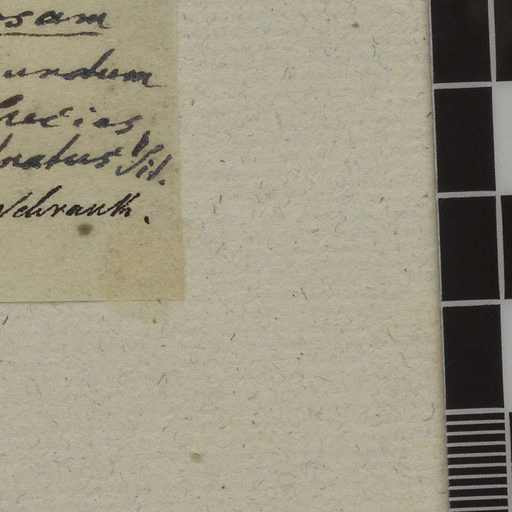 osam
undum
species
natus sit.
Schrank.